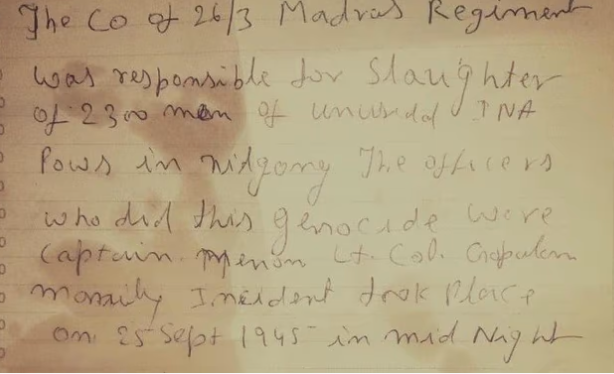 The CO of 26/3 Madras Regiment
was responsible for Slaughter
of 2300 men of unusedd INA
Pows in nidgong The officers
who did this genocide were
Captain Menon Lt. Col.
Incident took Place
on 25 Sept 1945 in mid Night